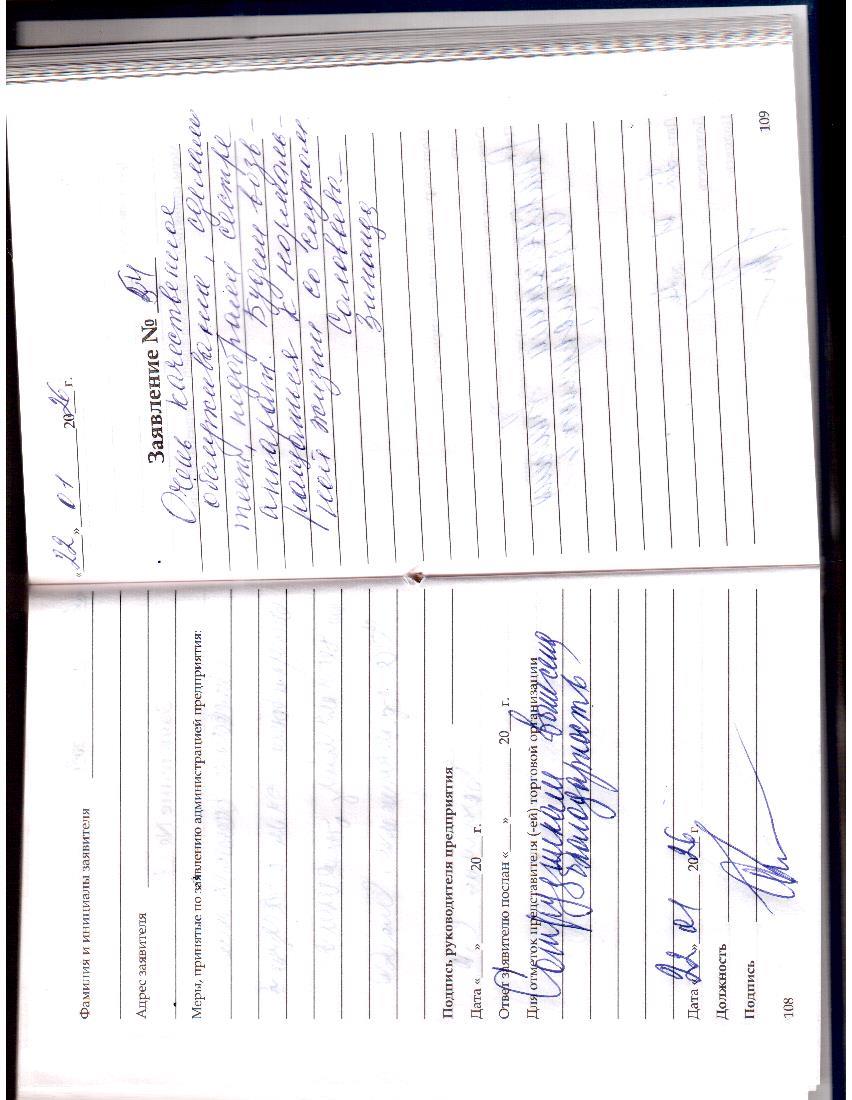 Фамилия и инициалы заявителя
Адрес заявителя
Меры, принятые по заявлению администрацией предприятия:
Подпись руководителя предприятия
Дата « » 20 г.
Ответ заявителю послан « » 20 г.
Для отметок представителя (-ей) торговой организации
Сотрудникам вынесена
благодарность
Дата 22 » 01 2026 г.
Должность
Подпись
108
« 22 » 01 2026 г.
Заявление № 54
Очень качественное
обслуживание, сделали
тест, подобрали сестре
аппарат. Будем возв-
ращаться к нормаль-
ной жизни со слухом.
Соловьева
Зинаида
109